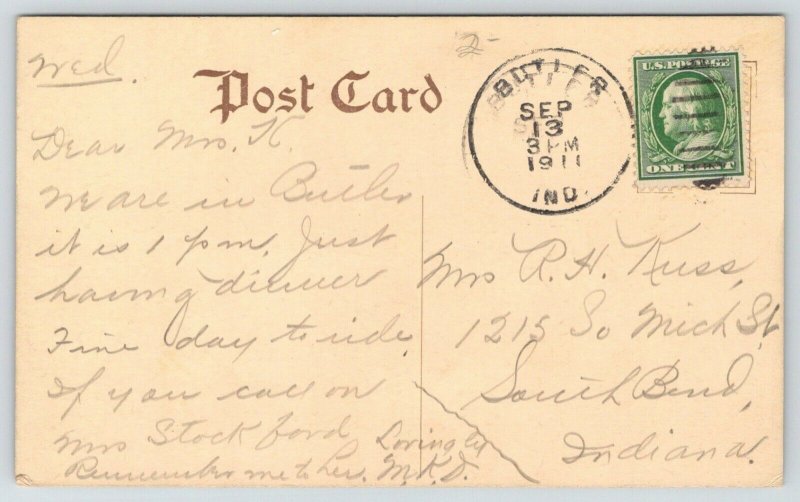 Wed.
2-
Post Card
BUTLER
SEP
13
3 PM
1911
IND.
U.S. POSTAGE
ONE CENT
Dear Mrs. K.
We are in Butler
it is 1 pm. Just
having dinner
Fine day to ride.
If you call on
Mrs Stockford
Remember me to her.
Lovingly
M.K.D.
Mrs R. H. Kuss,
1215 So Mich St.
South Bend,
Indiana.